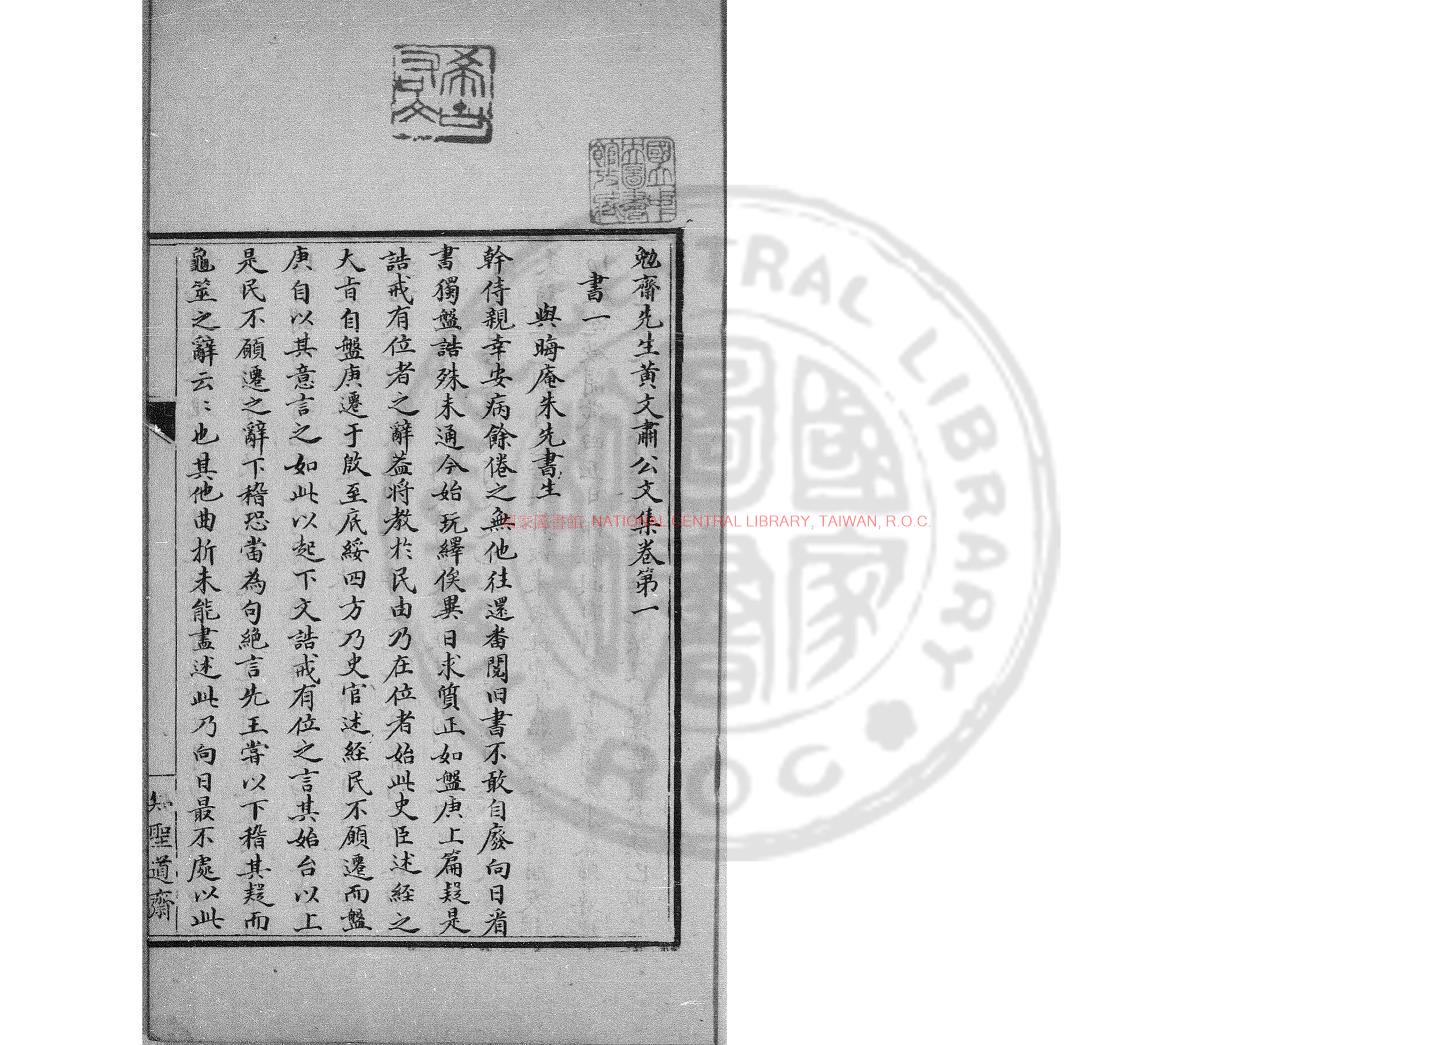 勉齋先生黄文肅公文集卷第一
書一
與晦庵朱先書生
幹侍親幸安病餘倦之無他往還畨閲旧書不敢自廢向日看
書獨盤誥殊未通今始玩繹俟異日求質正如盤庚上篇疑是
誥戒有位者之辭葢将教於民由乃在位者始此史臣述經之
大旨自盤庚遷于殷至底綏四方乃史官述經民不願遷而盤
庚自以其意言之如此以起下文誥戒有位之言其始台以上
是民不願遷之辭下稽恐當為句絶言先王嘗以下稽其疑而
龜筮之辭云云也其他曲折未能盡述此乃向日最不處以此
知聖道齋
希古
右文
國立中
央圖書
館收藏
國家圖書館 NATIONAL CENTRAL LIBRARY, TAIWAN, R.O.C.
CENTRAL LIBRARY
ROC
國家圖書